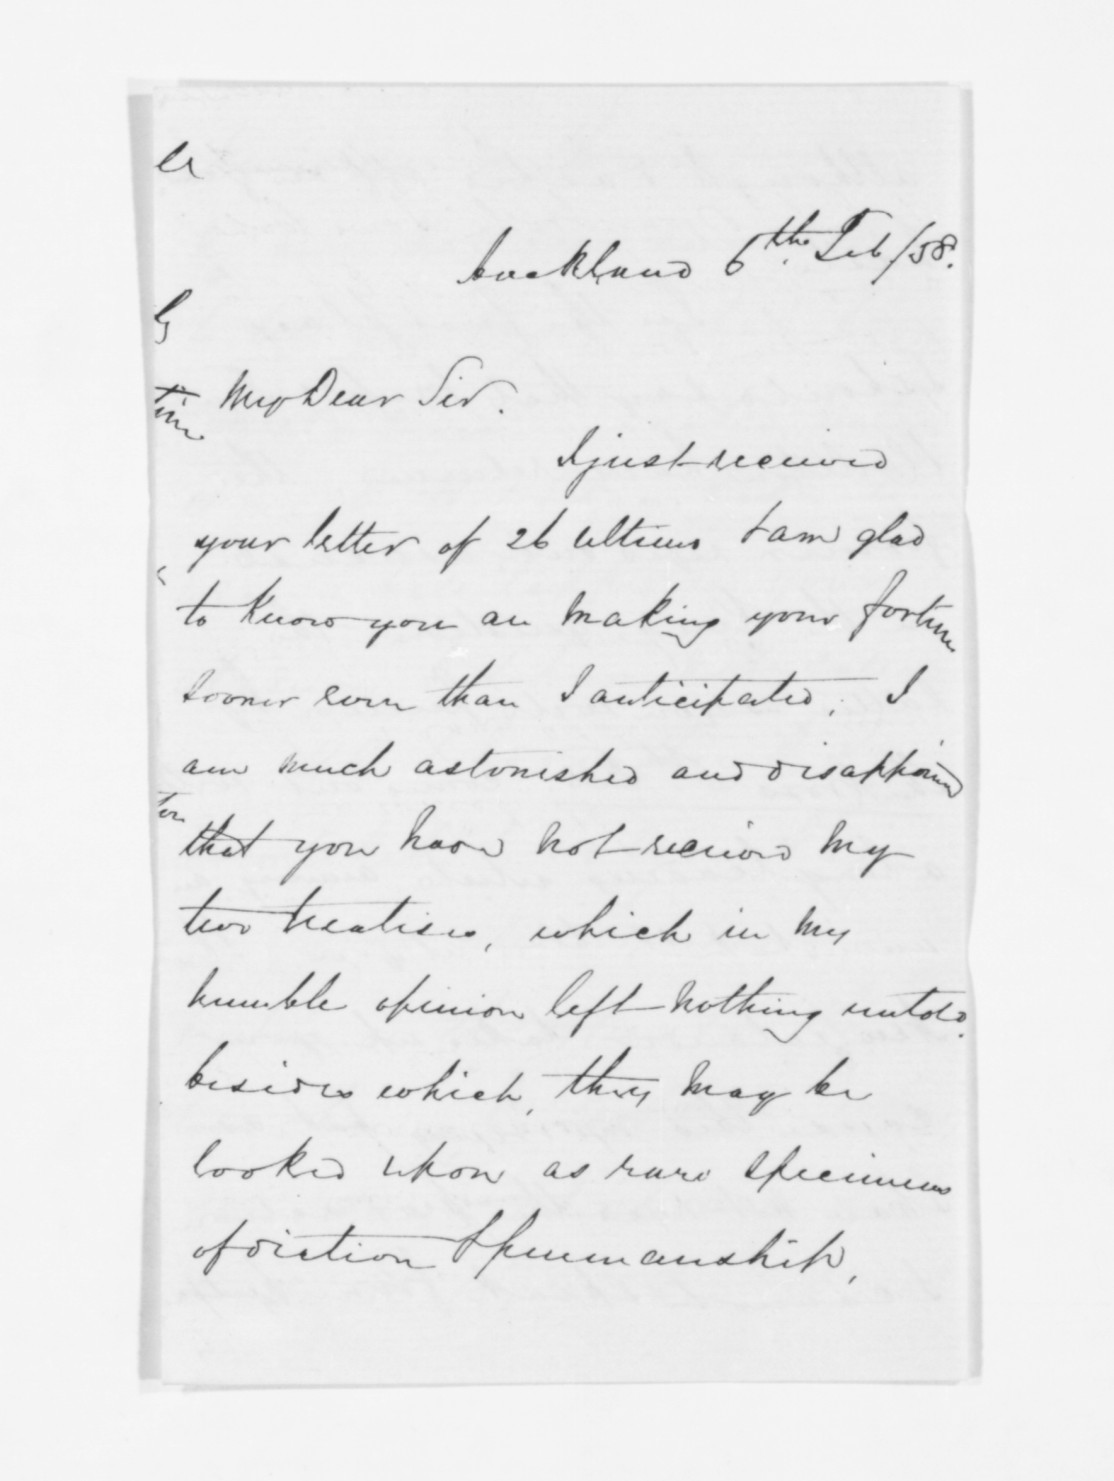 Auckland 6th. Feb/58.
My Dear Sir.
I just received
your letter of 26 ultimo & am glad
to know you are making your fortune
sooner even than I anticipated; I
am much astonished and disappointed
that you have not received my
two treatises, which in my
humble opinion left nothing untold.
besides which, they may be
looked upon as rare specimens
of diction & penmanship,